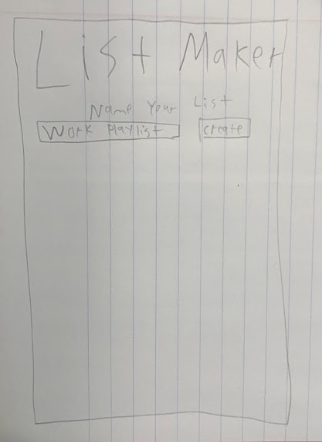 List Maker
Name Your List
Work Playlist create